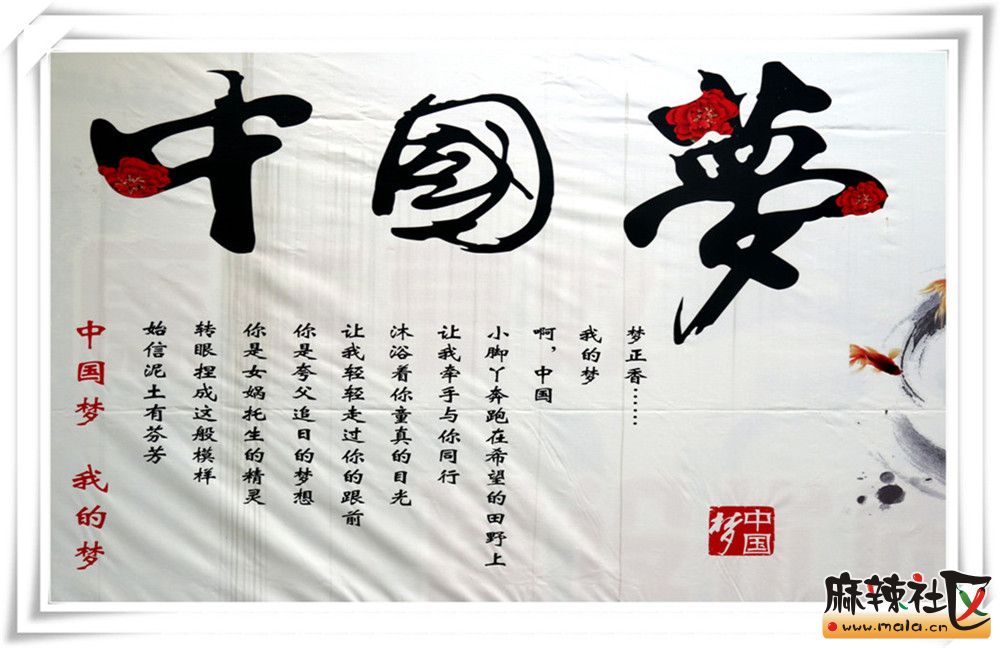 中國夢
中国梦 我的梦
始信泥土有芬芳
转眼捏成这般模样
你是女娲托生的精灵
你是夸父追日的梦想
让我轻轻走过你的跟前
沐浴着你童真的目光
让我牵手与你同行
小脚丫奔跑在希望的田野上
啊，中国
我的梦
梦正香……
中国梦
麻辣社区
www.mala.cn